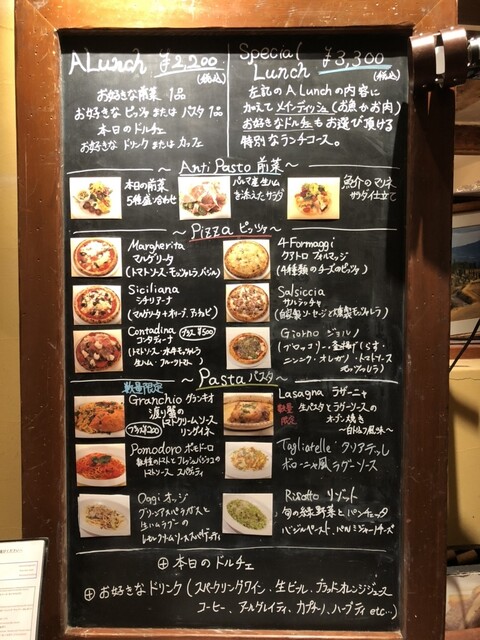 A Lunch ¥2,200 (税込)
お好きな前菜 1品
お好きな ピッツァ または パスタ 1品
本日の ドルチェ
お好きな ドリンク または カフェ
Special Lunch ¥3,300 (税込)
左記の A Lunch の内容に
加えて メインディッシュ (お魚かお肉)
お好きなドルチェも お選び頂ける
特別な ランチコース。
～ Anti Pasto 前菜 ～
本日の前菜
5種盛り合わせ
パルマ産生ハム
を添えたサラダ
魚介のマリネ
サラダ仕立て
～ Pizza ピッツァ ～
Margherita
マルゲリータ
(トマトソース・モッツァレラ・バジル)
4 Formaggi
クアトロ フォルマッジ
(4種類のチーズのピッツァ)
Siciliana
シチリアーナ
(マルゲリータ+オリーブ、アンチョビ)
Salsiccia
サルシッチャ
(自家製ソーセージと燻製モッツァレラ)
Contadina プラス ¥500
コンタディーナ
(トマトソース・水牛モッツァレラ
生ハム・フルーツトマト)
Giorno ジョルノ
(ブロッコリー・釜揚げしらす・
ニンニク・オレガノ・トマトソース
モッツァレラ)
～ Pasta パスタ ～
数量限定
Granchio グランキオ
渡り蟹の
トマトクリームソース
リングイネ
プラス¥200
Lasagna ラザーニャ
数量限定 生パスタとラグーソースの
オーブン焼き
Pomodoro ポモドーロ
トマトとフレッシュバジリコの
トマトソース スパゲティ
Tagliatelle タリアテッレ
ボローニャ風 ラグーソース
Oggi オッジ
グリーンアスパラガスと
生ハムラグーの
スパゲッティ
Risotto リゾット
旬の緑野菜と パンチェッタ
バジルペースト、パルミジャーノチーズ
⊕ 本日の ドルチェ
⊕ お好きな ドリンク (スパークリングワイン、生ビール、ブラッドオレンジジュース
コーヒー、アールグレイティ、カプチーノ、ハーブティ etc...)